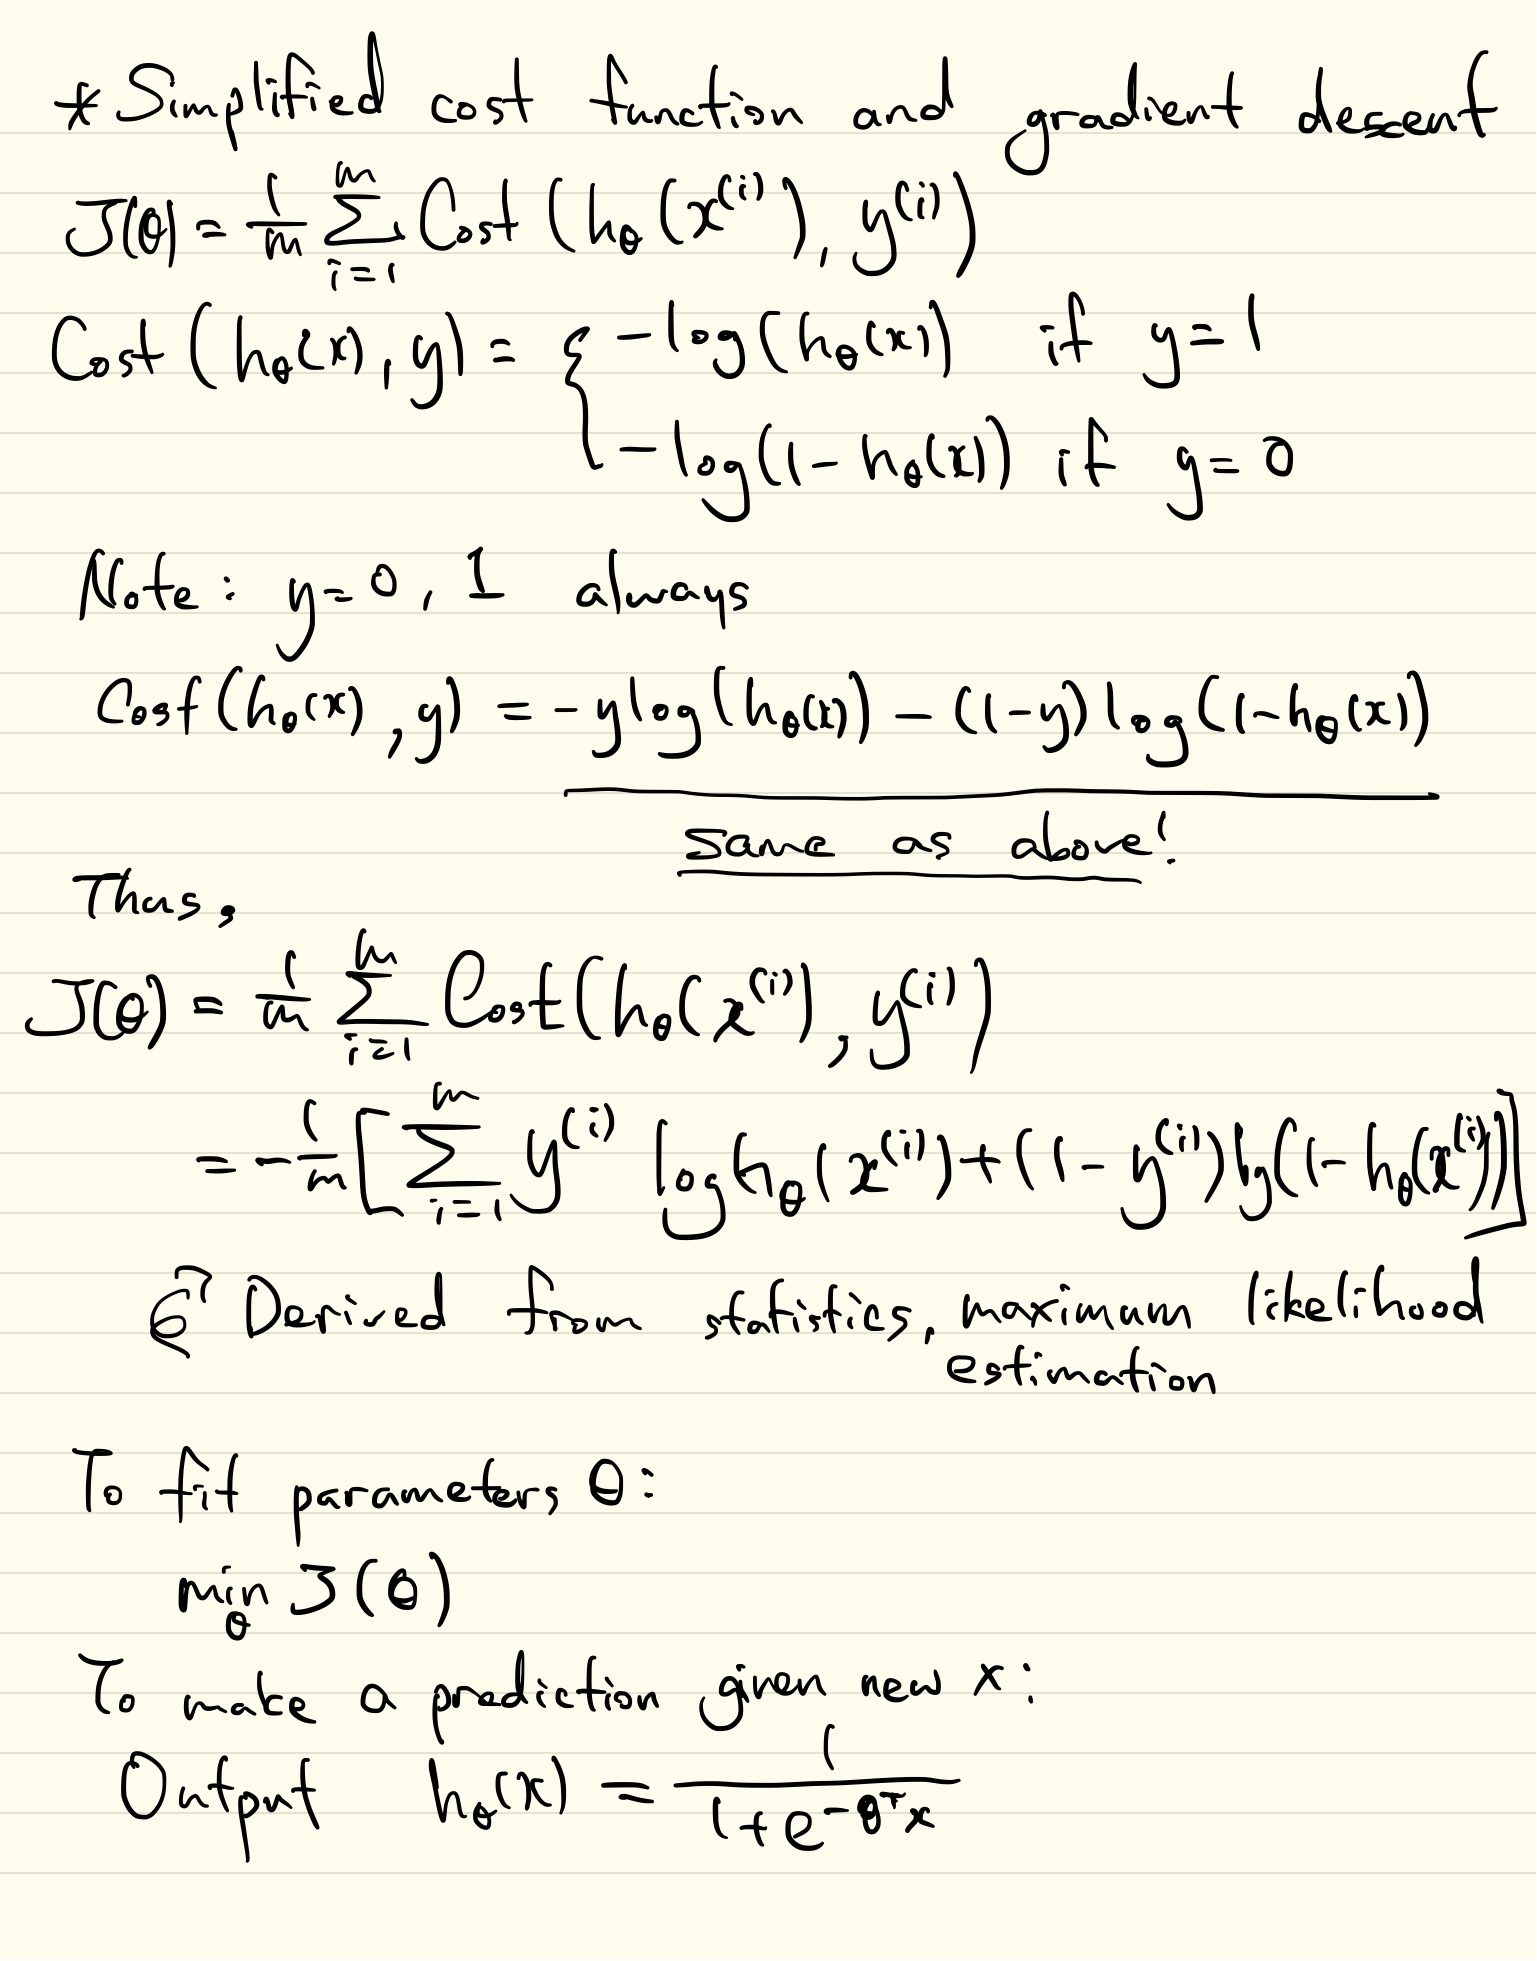 * Simplified cost function and gradient descent
J(θ) = 1/m Σ_{i=1}^{m} Cost(h_θ(x^{(i)}), y^{(i)})
Cost(h_θ(x), y) = { -log(h_θ(x)) if y=1
-log(1-h_θ(x)) if y=0
Note: y=0, 1 always
Cost(h_θ(x), y) = -ylog(h_θ(x)) - (1-y)log(1-h_θ(x))
same as above!
Thus,
J(θ) = 1/m Σ_{i=1}^{m} Cost(h_θ(x^{(i)}), y^{(i)})
= -1/m [Σ_{i=1}^{m} y^{(i)} log h_θ(x^{(i)}) + (1-y^{(i)}) log(1-h_θ(x^{(i)}))]
Derived from statistics, maximum likelihood
estimation
To fit parameters θ:
min_θ J(θ)
To make a prediction given new x:
Output h_θ(x) = 1/(1+e^{-θ^T x})